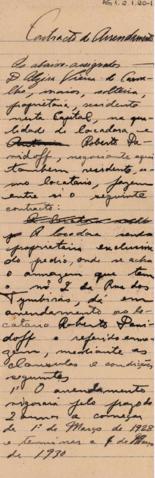 AG 1.2.1.20-1
Contracto de Arrendamento
Os abaixo assignados
D. Alzira Vieira de Carva-
lho, maior, solteira,
proprietaria, residente
nesta Capital, na qua-
lidade de locadora e
Roberto Da-
vidoff, negociante aqui
tambem residente, co-
mo locatario, fazem
entre si o seguinte
contracto:
A locadora sendo
proprietaria exclusiva
do predio, onde se acha
o armazem que tem
o nº 2 da Rua dos
Tymbiras, dá em
arrendamento ao lo-
catario Roberto Davi-
doff o referido arma-
zem, mediante as
clausulas e condições
seguintes
1º O arrendamento
vigorará pelo prazo de
2 annos a começar
de 1º de Março de 1928
e terminar a 1º de Março
de 1930